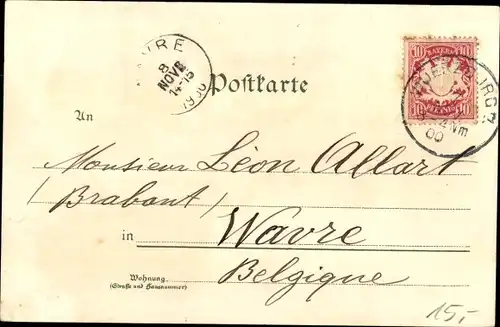 WAVRE
8
NOVE
14-15
1900
Postkarte
BAYERN
10 10
10 PFENNIG 10
WUERZBURG 2
00
An
Monsieur Léon Allart
(Brabant)
in Wavre
Belgique
Wohnung
(Straße und Hausnummer)
15,-